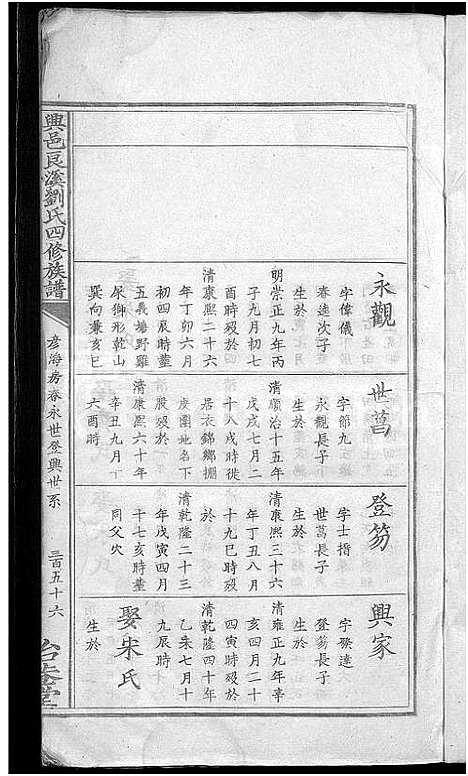 永觀
字偉儀
春逵次子
生於
明崇正九年丙
子九月初七
酉時殁於
清康熙二十六
年丁卯六月
初四辰時塟
五義塲野雞
尿獅形乾山
巽向兼亥巳
世蒕
字節九
永觀長子
生於
清順治十五年
戊戌七月二
十八戌時徙
居衣錦鄉棚
皮園地名下
股殁於
清康熙六十年
辛丑九月丁
六酉時
登笏
字士搢
世蒕長子
生於
清康熙三十六
年丁丑八月
十九巳時殁
於
清乾隆二十三
年戊寅四月
十七亥時塟
同父穴
興家
字殩達
登笏長子
生於
清雍正九年辛
亥四月二十
四寅時殁於
清乾隆四十年
乙未七月十
九辰時
娶宋氏
生於
興邑良溪劉氏四修族譜
彦海房春永世登興世系
三百五十六